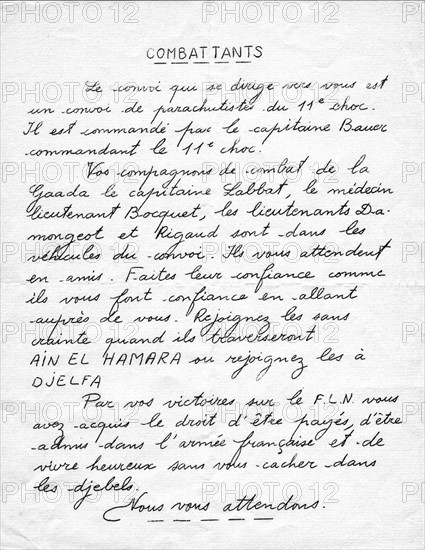 COMBATTANTS
Le convoi qui se dirige vers vous est
un convoi de parachutistes du 11e choc.
Il est commandé par le capitaine Bauer
commandant le 11e choc.
Vos compagnons de combat de la
Gaada le capitaine Labbat, le médecin
lieutenant Bocquet, les lieutenants Da-
mongeot et Rigaud sont dans les
véhicules du convoi. Ils vous attendent
en amis. Faites leur confiance comme
ils vous font confiance en allant
auprès de vous. Rejoignez les sans
crainte quand ils traverseront
AÏN EL HAMARA ou rejoignez les à
DJELFA
Par vos victoires sur le F.L.N. vous
avez acquis le droit d'être payés, d'être
admis dans l'armée française et de
vivre heureux sans vous cacher dans
les djebels.
Nous vous attendons.